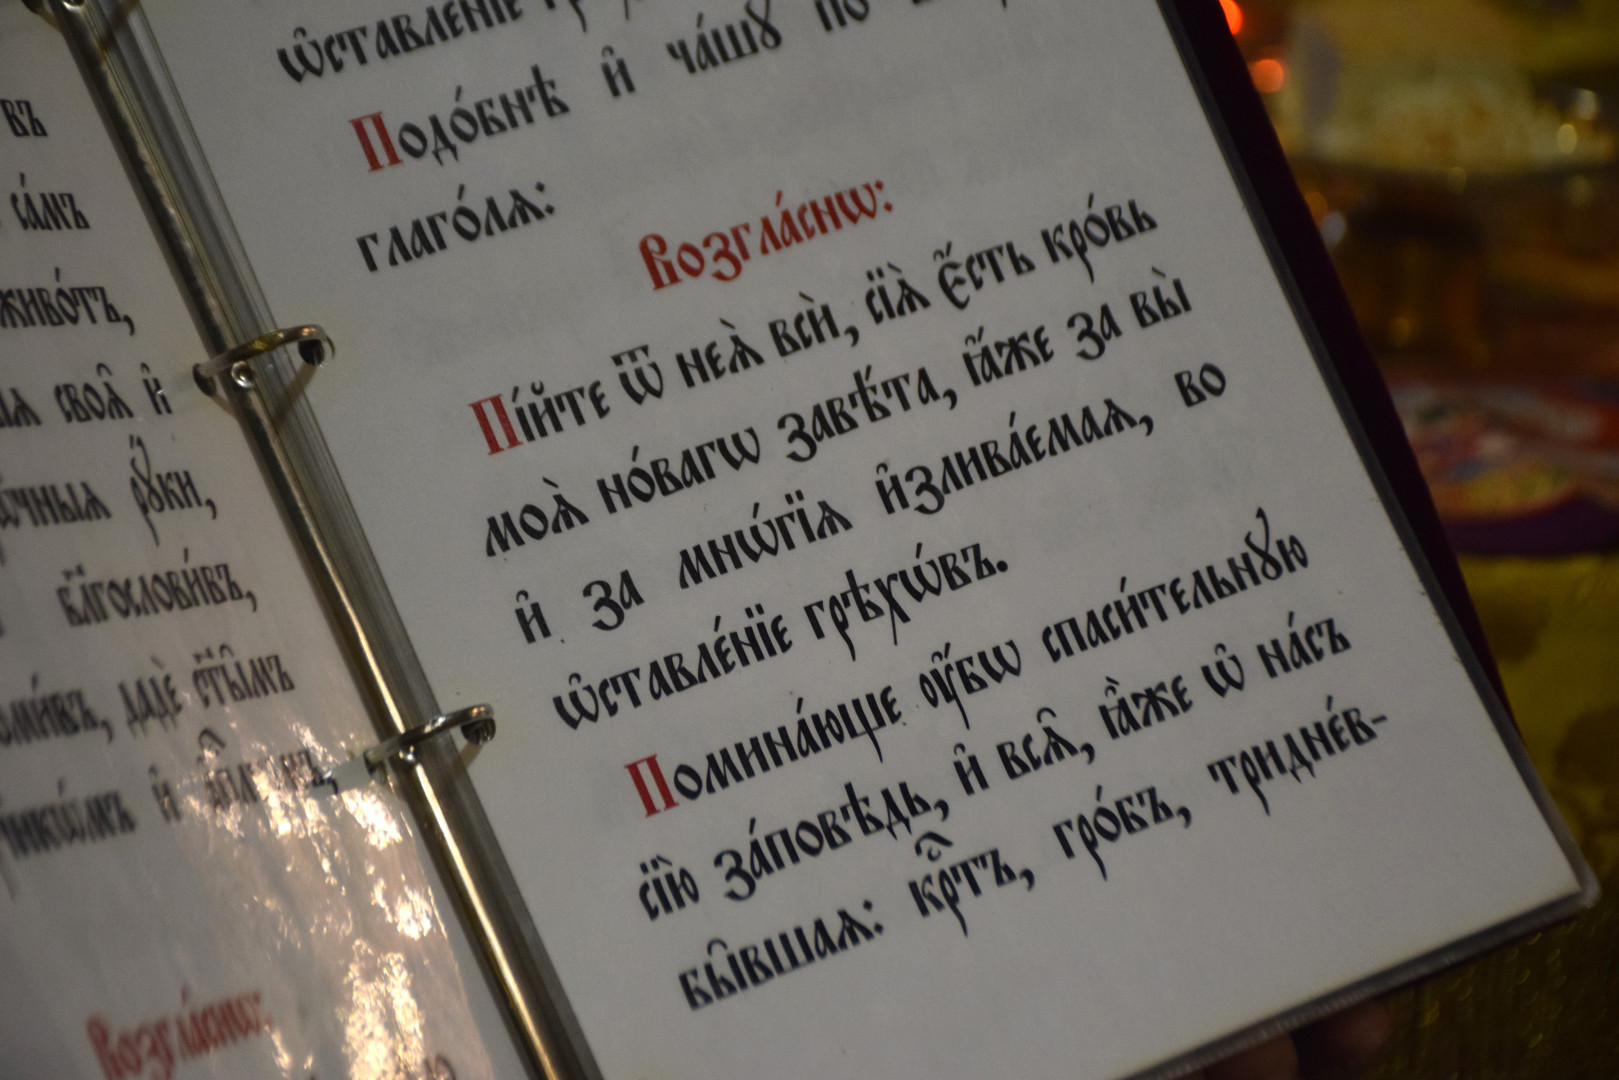 въ
са́мъ
живо́тъ,
своѧ̑ и҆
рꙋ́ки,
бл҃гослови́въ,
дадѐ ст҃ы̑мъ
и҆
Возгла́снѡ:
ѡ҆ставле́нїе
Подо́бнѣ и҆ ча́шꙋ по
глаго́лѧ:
Возгла́снѡ:
Пі́йте ѿ неѧ̀ всѝ, сїѧ̀ є҆́сть кро́вь
моѧ̀ но́вагѡ завѣ́та, ꙗ҆́же за вы̀
и҆ за мнѡ́гїѧ и҆злива́емаѧ, во
ѡ҆ставле́нїе грѣхѡ́въ.
Помина́юще ᲂу҆́бѡ спаси́тельнꙋю
сїю̀ за́повѣдь, и҆ всѧ̑, ꙗ҆̀же ѡ҆ на́съ
бы̑вшаѧ: крⷭ҇тъ, гро́бъ, тридне́в-